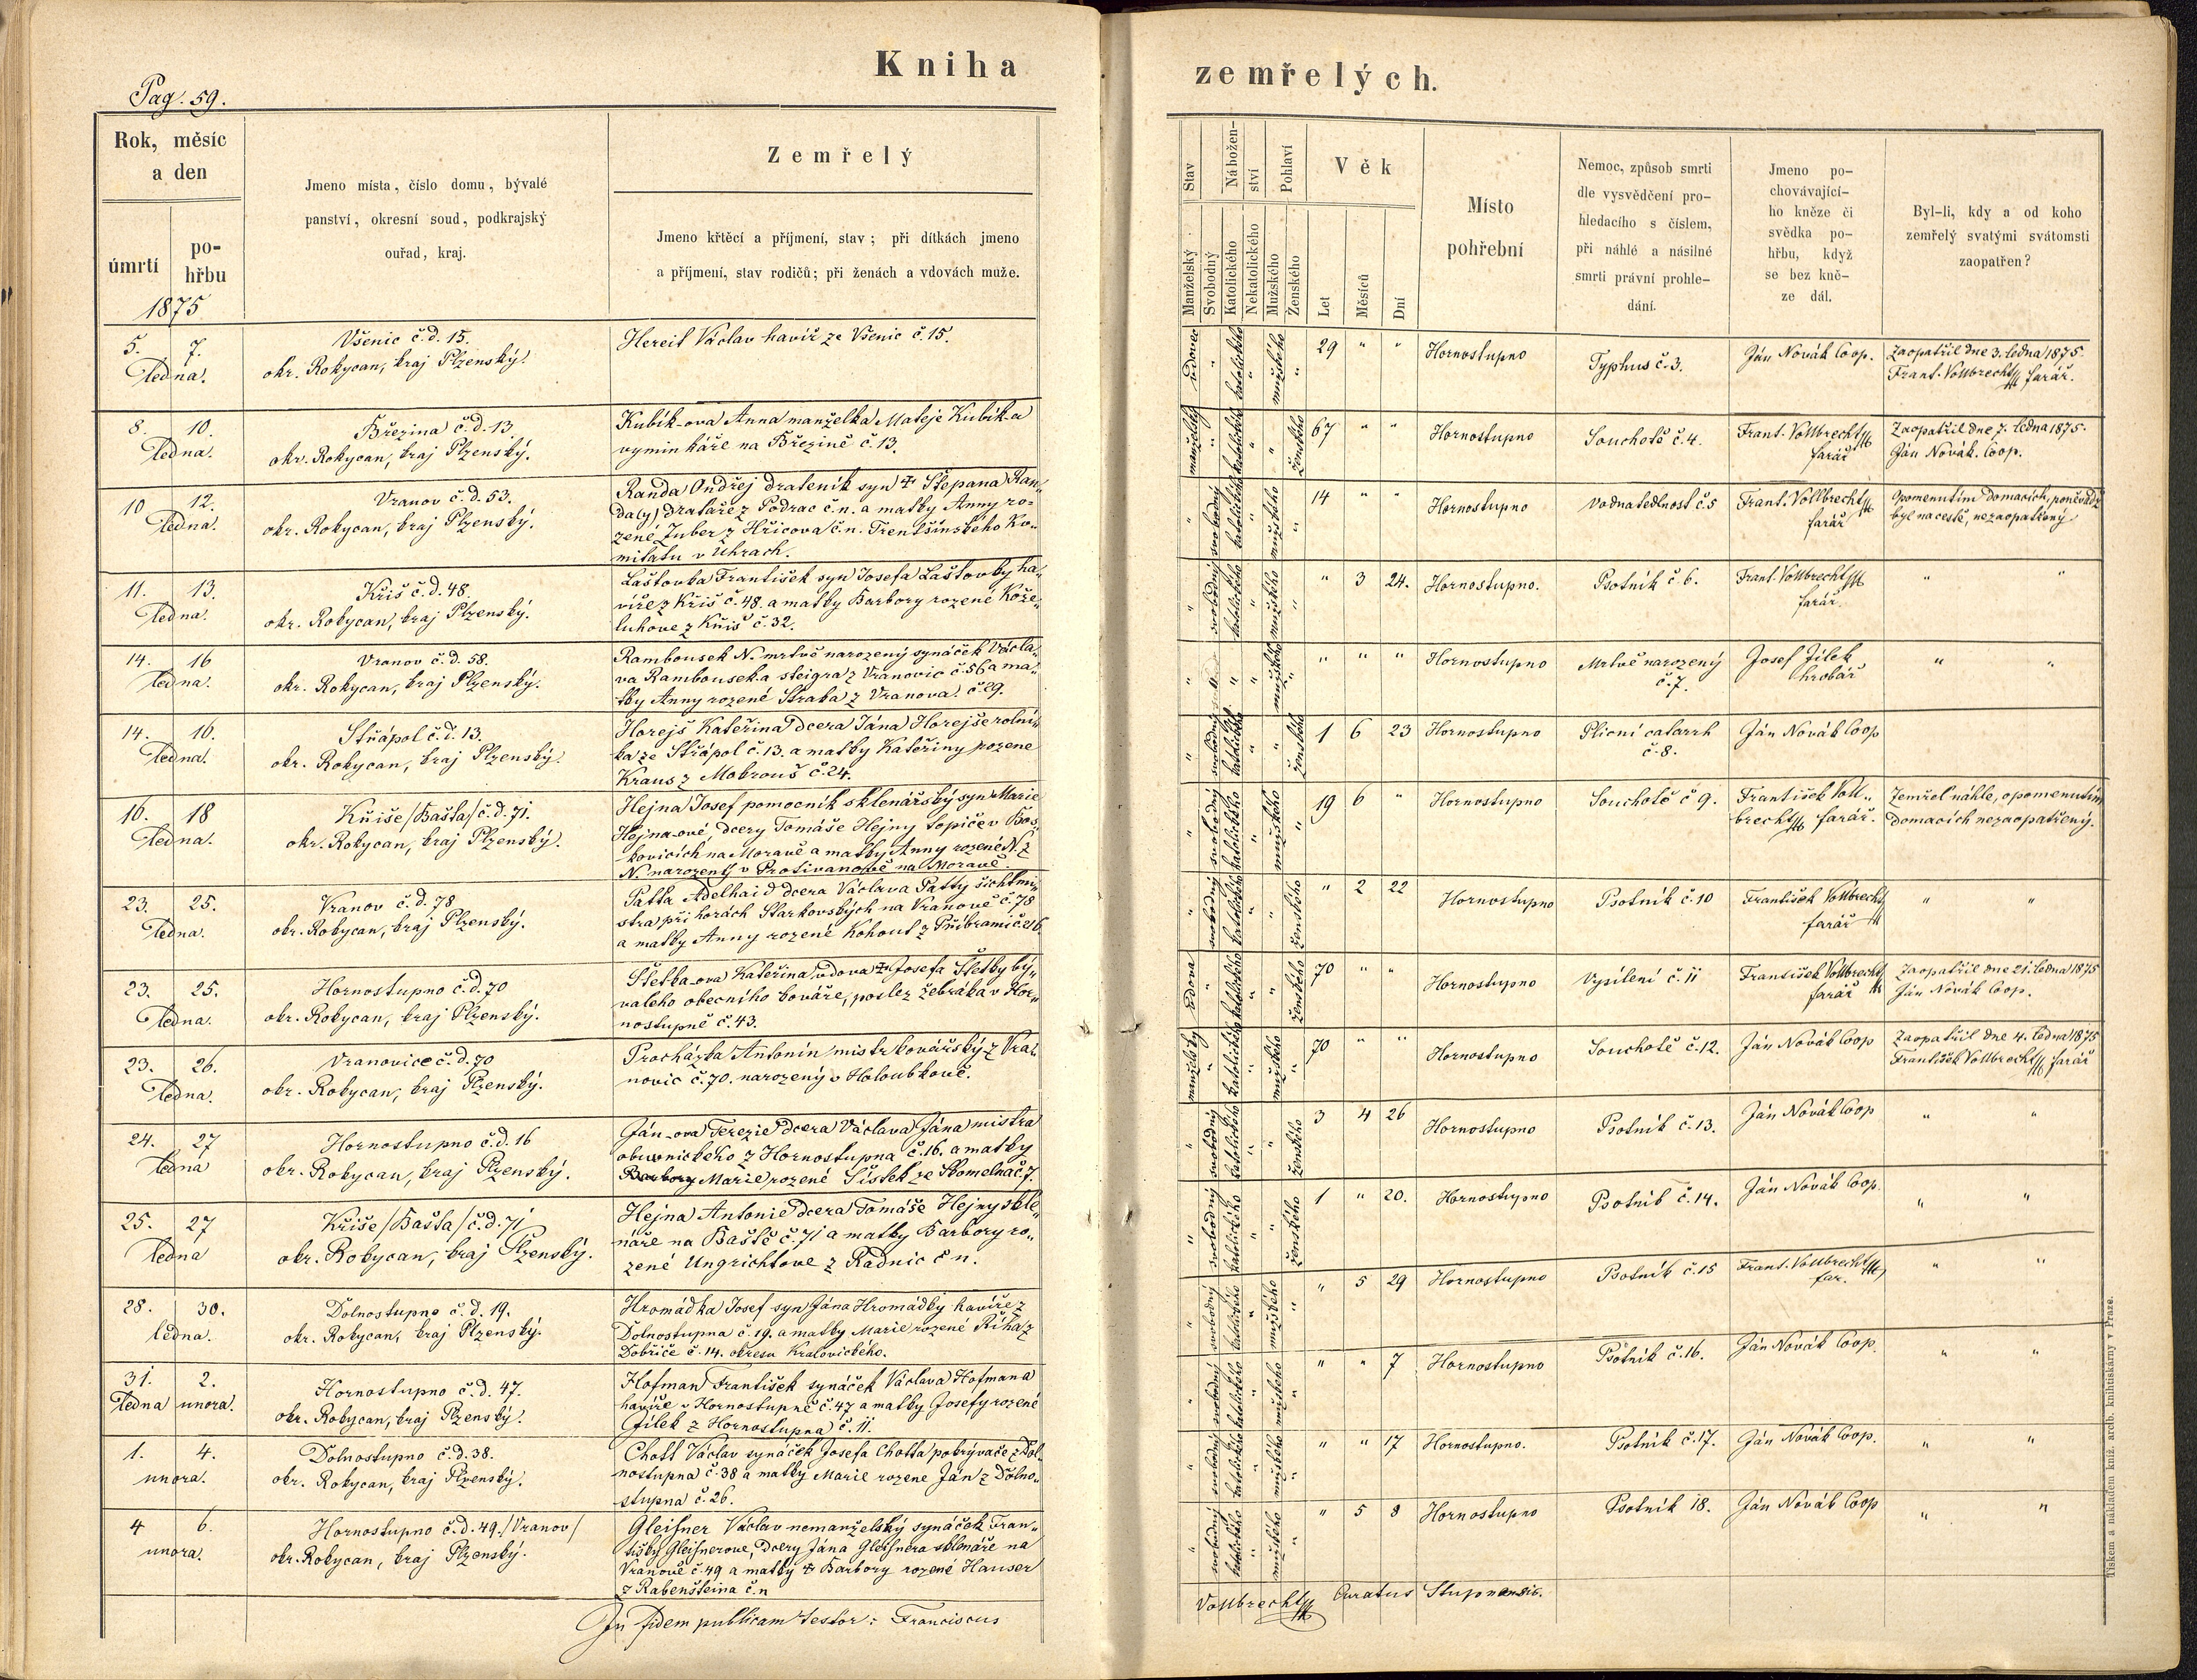 Kniha
zemřelých.
Pag. 59.
Rok, měsíc
a den
úmrtí
po-
hřbu
1875
Jmeno místa, číslo domu, bývalé
panství, okresní soud, podkrajský
ouřad, kraj.
Zemřelý
Jmeno křtěcí a příjmení, stav; při dítkách jmeno
a příjmení, stav rodičů; při ženách a vdovách muže.
Stav
Nábožen-
ství
Pohlaví
Manželský
Svobodný
Katolického
Nekatolického
Mužského
Ženského
Věk
Let
Měsíců
Dní
Místo
pohřební
Nemoc, způsob smrti
dle vysvědčení pro-
hledacího s číslem,
při náhlé a násilné
smrti právní prohle-
dání.
Jmeno po-
chovávající-
ho kněze či
svědka po-
hřbu, když
se bez kně-
ze dál.
Byl-li, kdy a od koho
zemřelý svatými svátomsti
zaopatřen?
5. 7.
ledna.
Všenic č.d. 15.
okr. Rokycan, kraj Plzenský.
Hereit Václav havíř ze Všenic č. 15.
vdovec " katolického " mužského "
29 " "
Hornostupno
Typhus č. 3.
Ján Novák Coop.
Zaopatřil dne 3. ledna 1875.
Frant. Vollbrecht farář.
8. 10.
ledna.
Březina č.d. 13
okr. Rokycan, kraj Plzenský.
Kubík-ova Anna manželka Mateje Kubík-a
vyminkáře na Březině č. 13.
manželský " katolického " " ženského
67 " "
Hornostupno
Souchotě č. 4.
Frant. Vollbrecht
farář
Zaopatřil dne 7. ledna 1875.
Ján Novák. Coop.
10 12.
ledna.
Vranov č.d. 53.
okr. Rokycan, kraj Plzenský.
Randa Ondřej drateník syn † Štepana Ran„
da(y) drataře z Podrac č.n. a matky Anny ro=
zené Juber z Hřicova č.n. Trenšínského Ko„
mitatu v Uhrach.
" svobodný katolického " mužského "
14 " "
Hornostupno
Vodnatedlnost č. 5
Frant. Vollbrecht
farář
Opomenutím domacích, poněvadž
byl na cestě, nezaopatřený
11. 13.
ledna.
Kříš č.d. 48.
okr. Rokycan, kraj Plzenský.
Laštovka František syn Josefa Laštovky ha„
víře z Kříš č. 48. a matky Barbory rozené Kože„
luhove z Kříš č. 32.
" svobodný katolického " mužského "
" 3 24.
Hornostupno.
Psotník č. 6.
Frant. Vollbrecht
farář.
" "
14. 16
ledna.
Vranov č.d. 58.
okr. Rokycan, kraj Plzenský.
Rambousek N. mrtvě narozený synáček Václa„
va Rambousek-a steigra z Vranovic č. 56 a ma„
tky Anny rozené Straka z Vranova č. 29.
" " " mužského "
" " "
Hornostupno
Mrtvě narozený
č. 7.
Josef Jílek
hrobář
" "
14. 16.
ledna.
Střápol č.d. 13.
okr. Rokycan, kraj Plzenský.
Horejš Kateřina dcera Jána Horejše rolní„
ka ze Střápol č. 13. a matky Kateřiny rozene
Kraus z Mokrouš č. 24.
" svobodný katolického " " ženského
1 6 23
Hornostupno
Plicní catarrh
č. 8.
Ján Novák Coop
16. 18
ledna.
Kříše /Bašta/ č.d. 71.
okr. Rokycan, kraj Plzenský.
Hejna Josef pomocník sklenářský syn Marie
Hejna-ové, dcery Tomáše Hejny topiče v Bos„
kovicích na Moravě a matky Anny rozené N. z
N. narozený v Protivanově na Moravě.
" svobodný katolického " mužského "
19 6 "
Hornostupno
Souchotě č 9.
František Voll„
brecht farář.
Zemřel náhle, opomenutím
domacích nezaopatřený.
23. 25.
ledna.
Vranov č.d. 78
okr. Rokycan, kraj Plzenský.
Patta Adelhaid dcera Václava Patty šichtmi„
stra při horách Starkovských na Vranově č. 78
a matky Anny rozené Kohout z Příbrami č. 216.
" svobodný katolického " " ženského
" 2 22
Hornostupno
Psotník č. 10
František Vollbrecht
farář
" "
23. 25.
ledna.
Hornostupno č.d. 70
okr. Rokycan, kraj Plzenský.
Štetka-ova Kateřina vdova † Josefa Štetky bý„
valeho obecního kováře, poslez žebráka v Hor„
nostupně č. 43.
vdova " katolického " " ženského
70 " "
Hornostupno
Vysílení č. 11
František Vollbrecht
farář
Zaopatřil dne 21. ledna 1875
Ján Novák Coop.
23. 26.
ledna.
Vranovice č.d. 70
okr. Rokycan, kraj Plzenský.
Procházka Antonín mistr kovářský z Vra„
novic č. 70. narozený v Holoubkově.
manželský " katolického " mužského "
70 " "
Hornostupno
Souchotě č. 12.
Ján Novák Coop
Zaopatřil dne 4. ledna 1875
František Vollbrecht farář
24. 27
ledna
Hornostupno č.d. 16
okr. Rokycan, kraj Plzenský.
Ján-ova Terezie dcera Václava Jána mistra
obuvnickeho z Hornostupna č. 16. a matky
Barbory Marie rozené Šístek ze Skomelna č. 7.
" svobodný katolického " " ženského
3 4 26
Hornostupno
Psotník č. 13.
Ján Novák Coop
" "
25. 27
ledna
Kříše /Bašta/ č.d. 71
okr. Rokycan, kraj Plzenský.
Hejna Antonie dcera Tomáše Hejny skle„
náře na Baště č. 71 a matky Barbory ro„
zené Ungrichtove z Radnic č n.
" svobodný katolického " " ženského
1 " 20.
Hornostupno
Psotník č. 14.
Ján Novák Coop.
" "
28. 30.
ledna.
Dolnostupno č.d. 19.
okr. Rokycan, kraj Plzenský.
Hromádka Josef syn Jána Hromádky havíře z
Dolnostupna č. 19. a matky Marie rozené Říha z
Dobříče č. 14. okresu Kralovického.
" svobodný katolického " mužského "
" 5 29
Hornostupno
Psotník č. 15
Frant. Vollbrecht
far.
" "
31. 2.
ledna unora.
Hornostupno č.d. 47.
okr. Rokycan, kraj Plzenský.
Hofman František synáček Václava Hofmana
havíře v Hornostupně č. 47 a matky Josefy rozené
Jílek z Hornostupna č. 11.
" svobodný katolického " mužského "
" " 7
Hornostupno
Psotník č. 16.
Ján Novák Coop.
" "
1. 4.
unora.
Dolnostupno č.d. 38.
okr. Rokycan, kraj Plzenský.
Chott Václav synáček Josefa Chotta pokrývače z Dol„
nostupna č. 38 a matky Marie rozene Ján z Dolno„
stupna č. 26.
" svobodný katolického " mužského "
" " 17
Hornostupno.
Psotník č. 17.
Ján Novák Coop.
" "
4 6.
unora.
Hornostupno č.d. 49. /Vranov/
okr. Rokycan, kraj Plzenský.
Gleisner Václav nemanželský synáček Fran„
tišky Gleisnerove, dcery Jána Gleisnera sklenáře na
Vranově č. 49 a matky † Barbory rozené Hauser
z Rabenšteina č.n
" svobodný katolického " mužského "
" 5 8
Hornostupno
Psotník 18.
Ján Novák Coop
" "
In fidem publicam testor: Franciscus
Vollbrecht Curatus Stupnensis.
Tiskem a nákladem kníž. arcib. knihtiskárny v Praze.